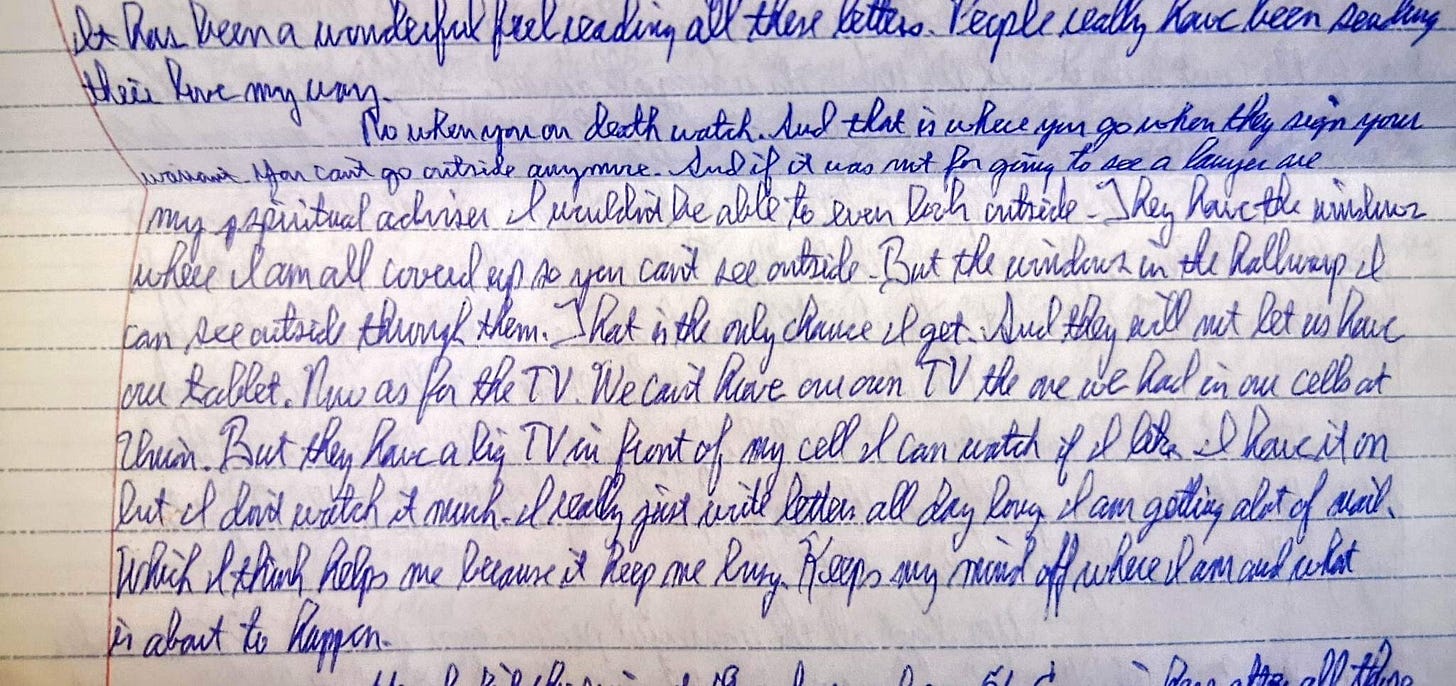 It has been a wonderful feel reading all these letters. People really have been sending
their love my way.
No when you on death watch. And that is where you go when they sign your
warrant. You can't go outside anymore. And if it was not for going to see a lawyer are
my spiritual adviser I wouldn't be able to even look outside. They have the windows
where I am all covered up so you can't see outside. But the windows in the hallway I
can see outside through them. That is the only chance I get. And they will not let us have
our tablet. Now as for the TV. We can't have our own TV the one we had in our cells at
Union. But they have a big TV in front of my cell I can watch if I like I have it on
but I don't watch it much. I really just write letters all day long I am getting alot of mail.
Which I think helps me because it keep me busy. Keeps my mind off where I am and what
is about to happen.